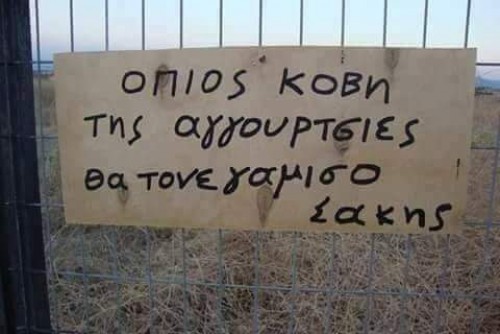 οπιος κοβη
της αγγουρτσιες
θα τονε γαμισο
Σακης